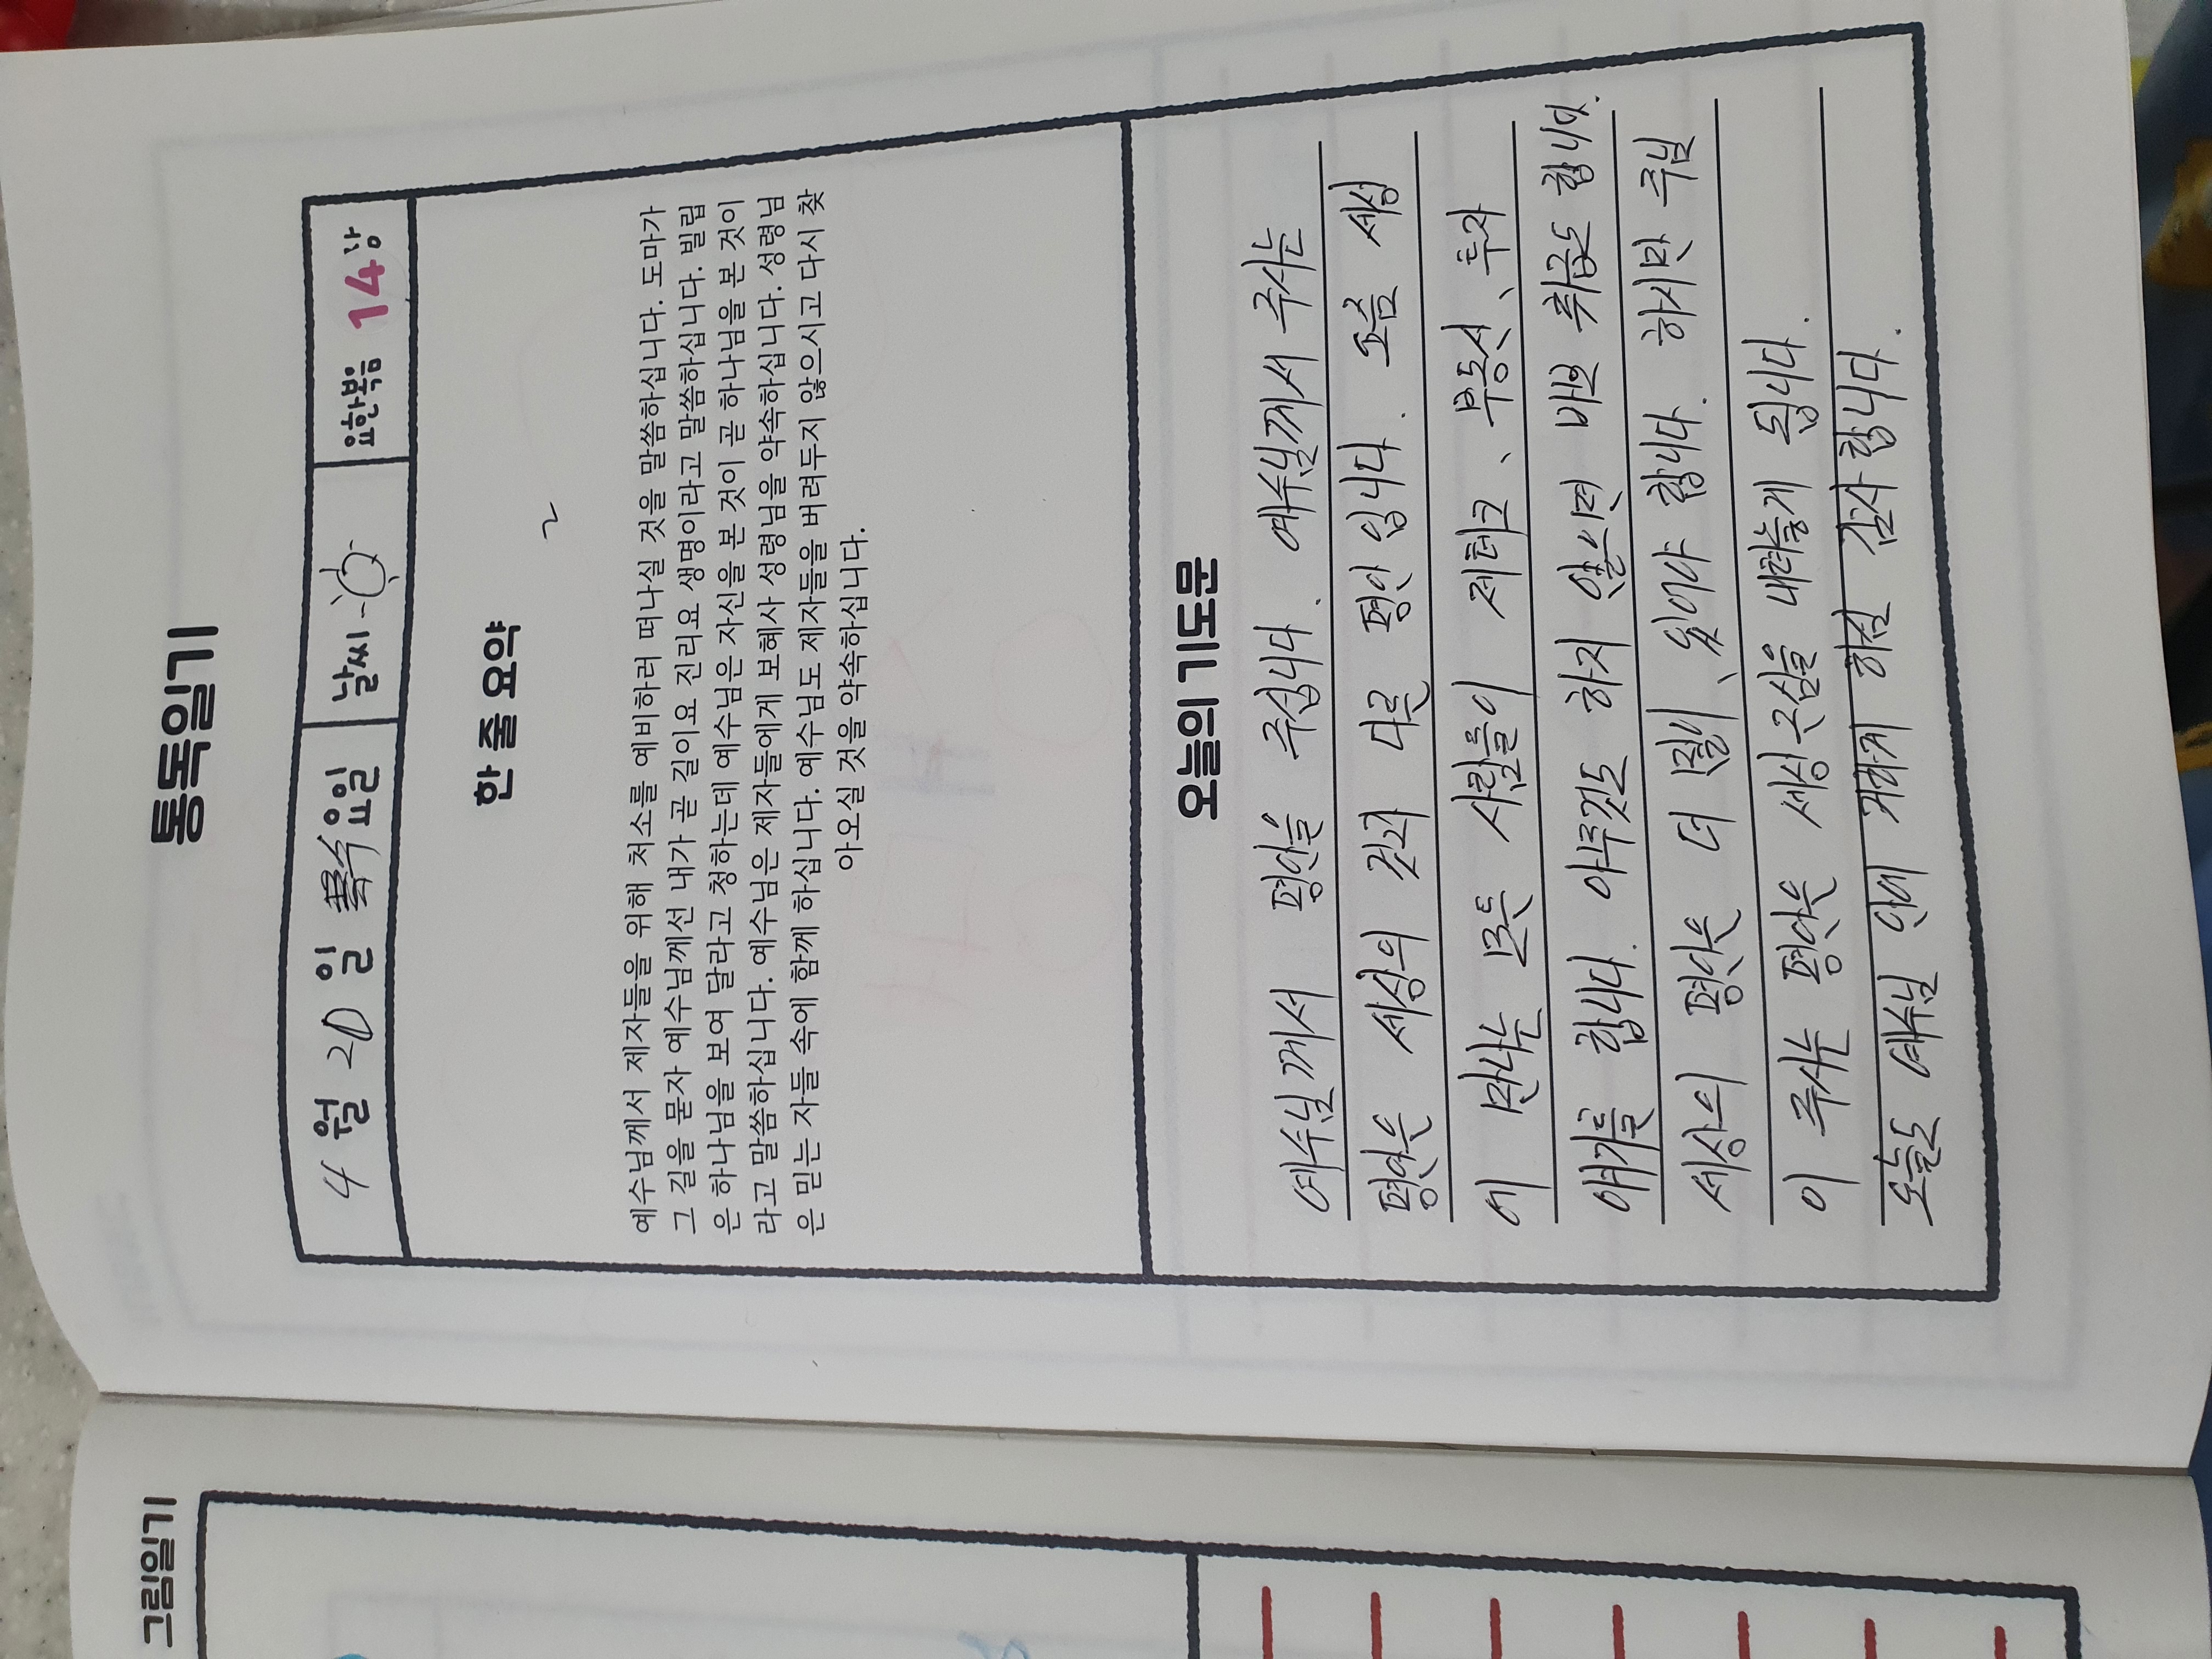 통독일기
4월 20일 수요일 날씨 요한복음 14장
한 줄 요약
예수님께서 제자들을 위해 처소를 예비하러 떠나실 것을 말씀하십니다. 도마가
그 길을 묻자 예수님께선 내가 곧 길이요 진리요 생명이라고 말씀하십니다. 빌립
은 하나님을 보여 달라고 청하는데 예수님은 자신을 본 것이 곧 하나님을 본 것이
라고 말씀하십니다. 예수님은 제자들에게 보혜사 성령님을 약속하십니다. 성령님
은 믿는 자들 속에 함께 하십니다. 예수님도 제자들을 버려두지 않으시고 다시 찾
아오실 것을 약속하십니다.
오늘의 기도문
예수님께서 평안을 주십니다. 예수님께서 주시는
평안은 세상의 것과 다른 평안 입니다. 요즘 세상
에 만나는 모든 사람들이 제테크, 부동산, 투자
얘기를 합니다. 아무것도 하지 않으면 바보 취급도 합니다.
세상의 평안은 더 많이, 있어야 합니다. 하지만 주님
이 주시는 평안은 세상 근심을 내려놓게 됩니다.
오늘도 예수님 안에 거하게 하심 감사합니다.
그림일기